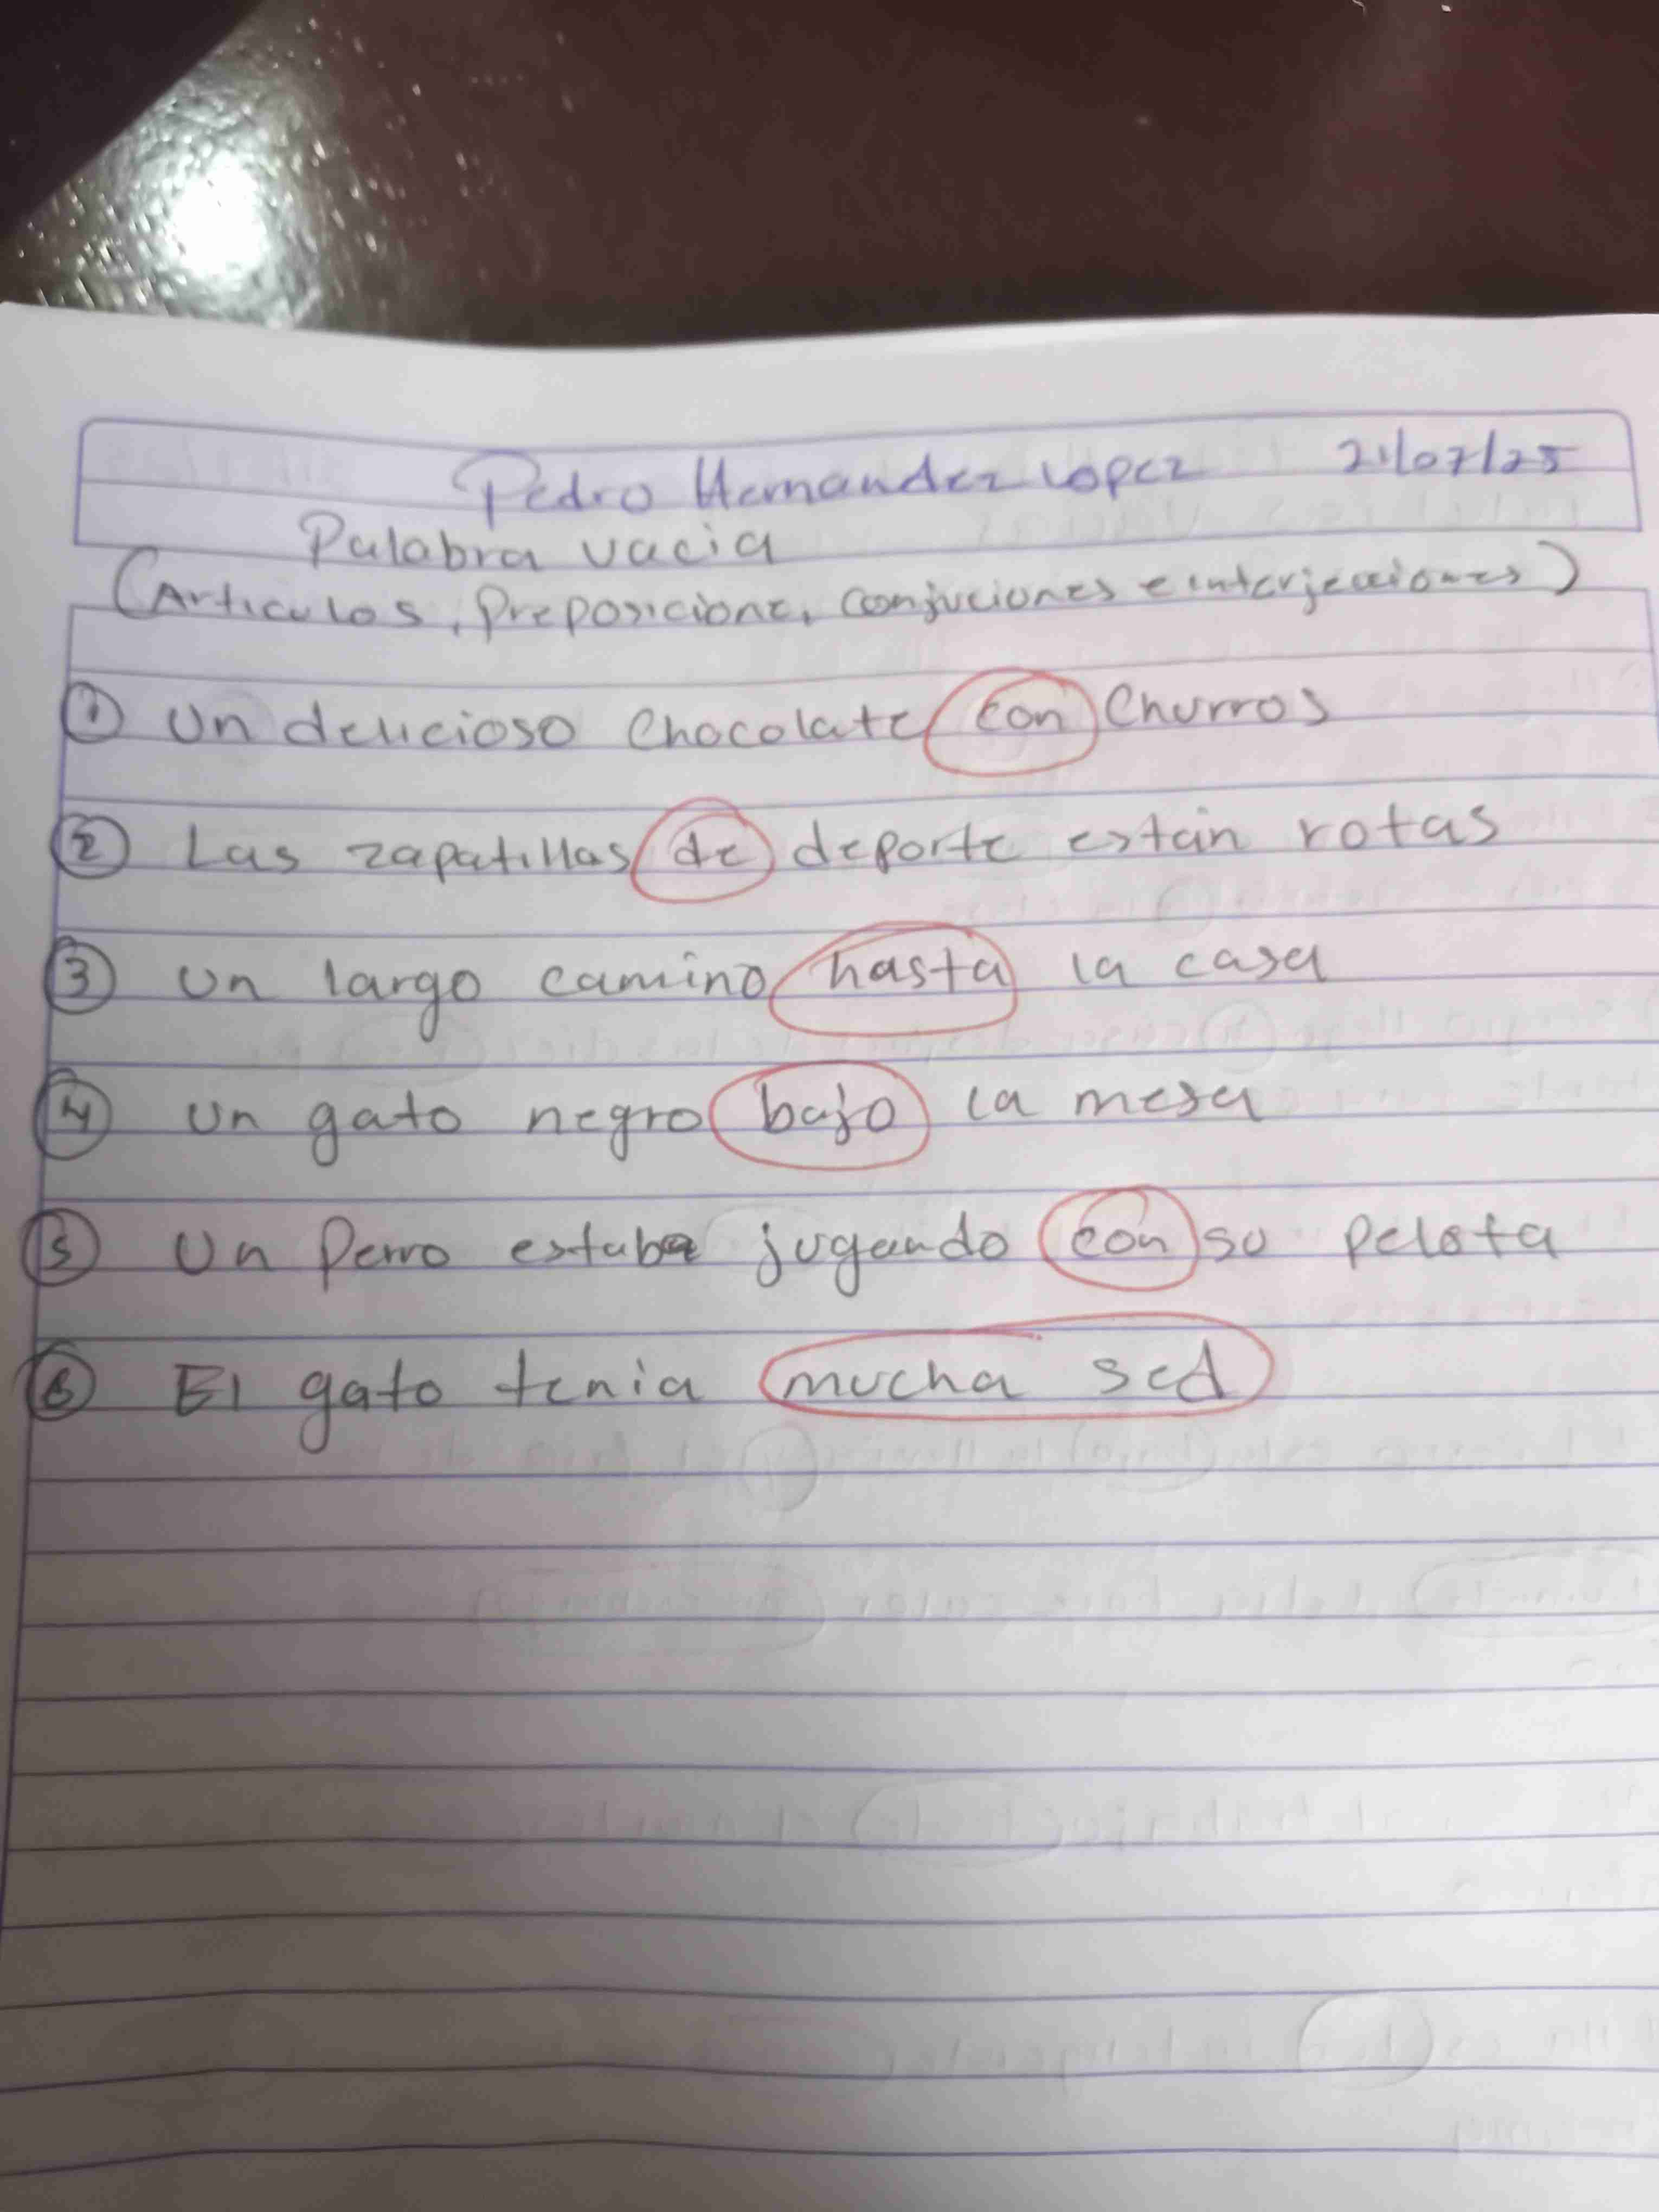 Pedro Hernandez Lopez 21/07/25
Palabra vacia
(Articulos, Preposicione, conjuciones e interjecciones)
① Un delicioso chocolate con churros
② Las zapatillas de deporte están rotas
③ Un largo camino hasta la casa
④ Un gato negro bajo la mesa
⑤ Un Perro estaba jugando con su pelota
⑥ El gato tenia mucha sed